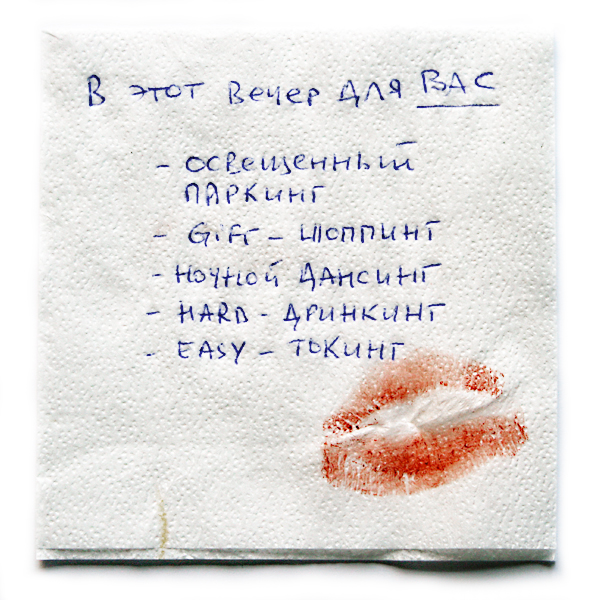 В этот вечер для ВАС
- освещенный
паркинг
- Gift - шоппинг
- ночной дансинг
- HARD - дринкинг
- EASY - токинг